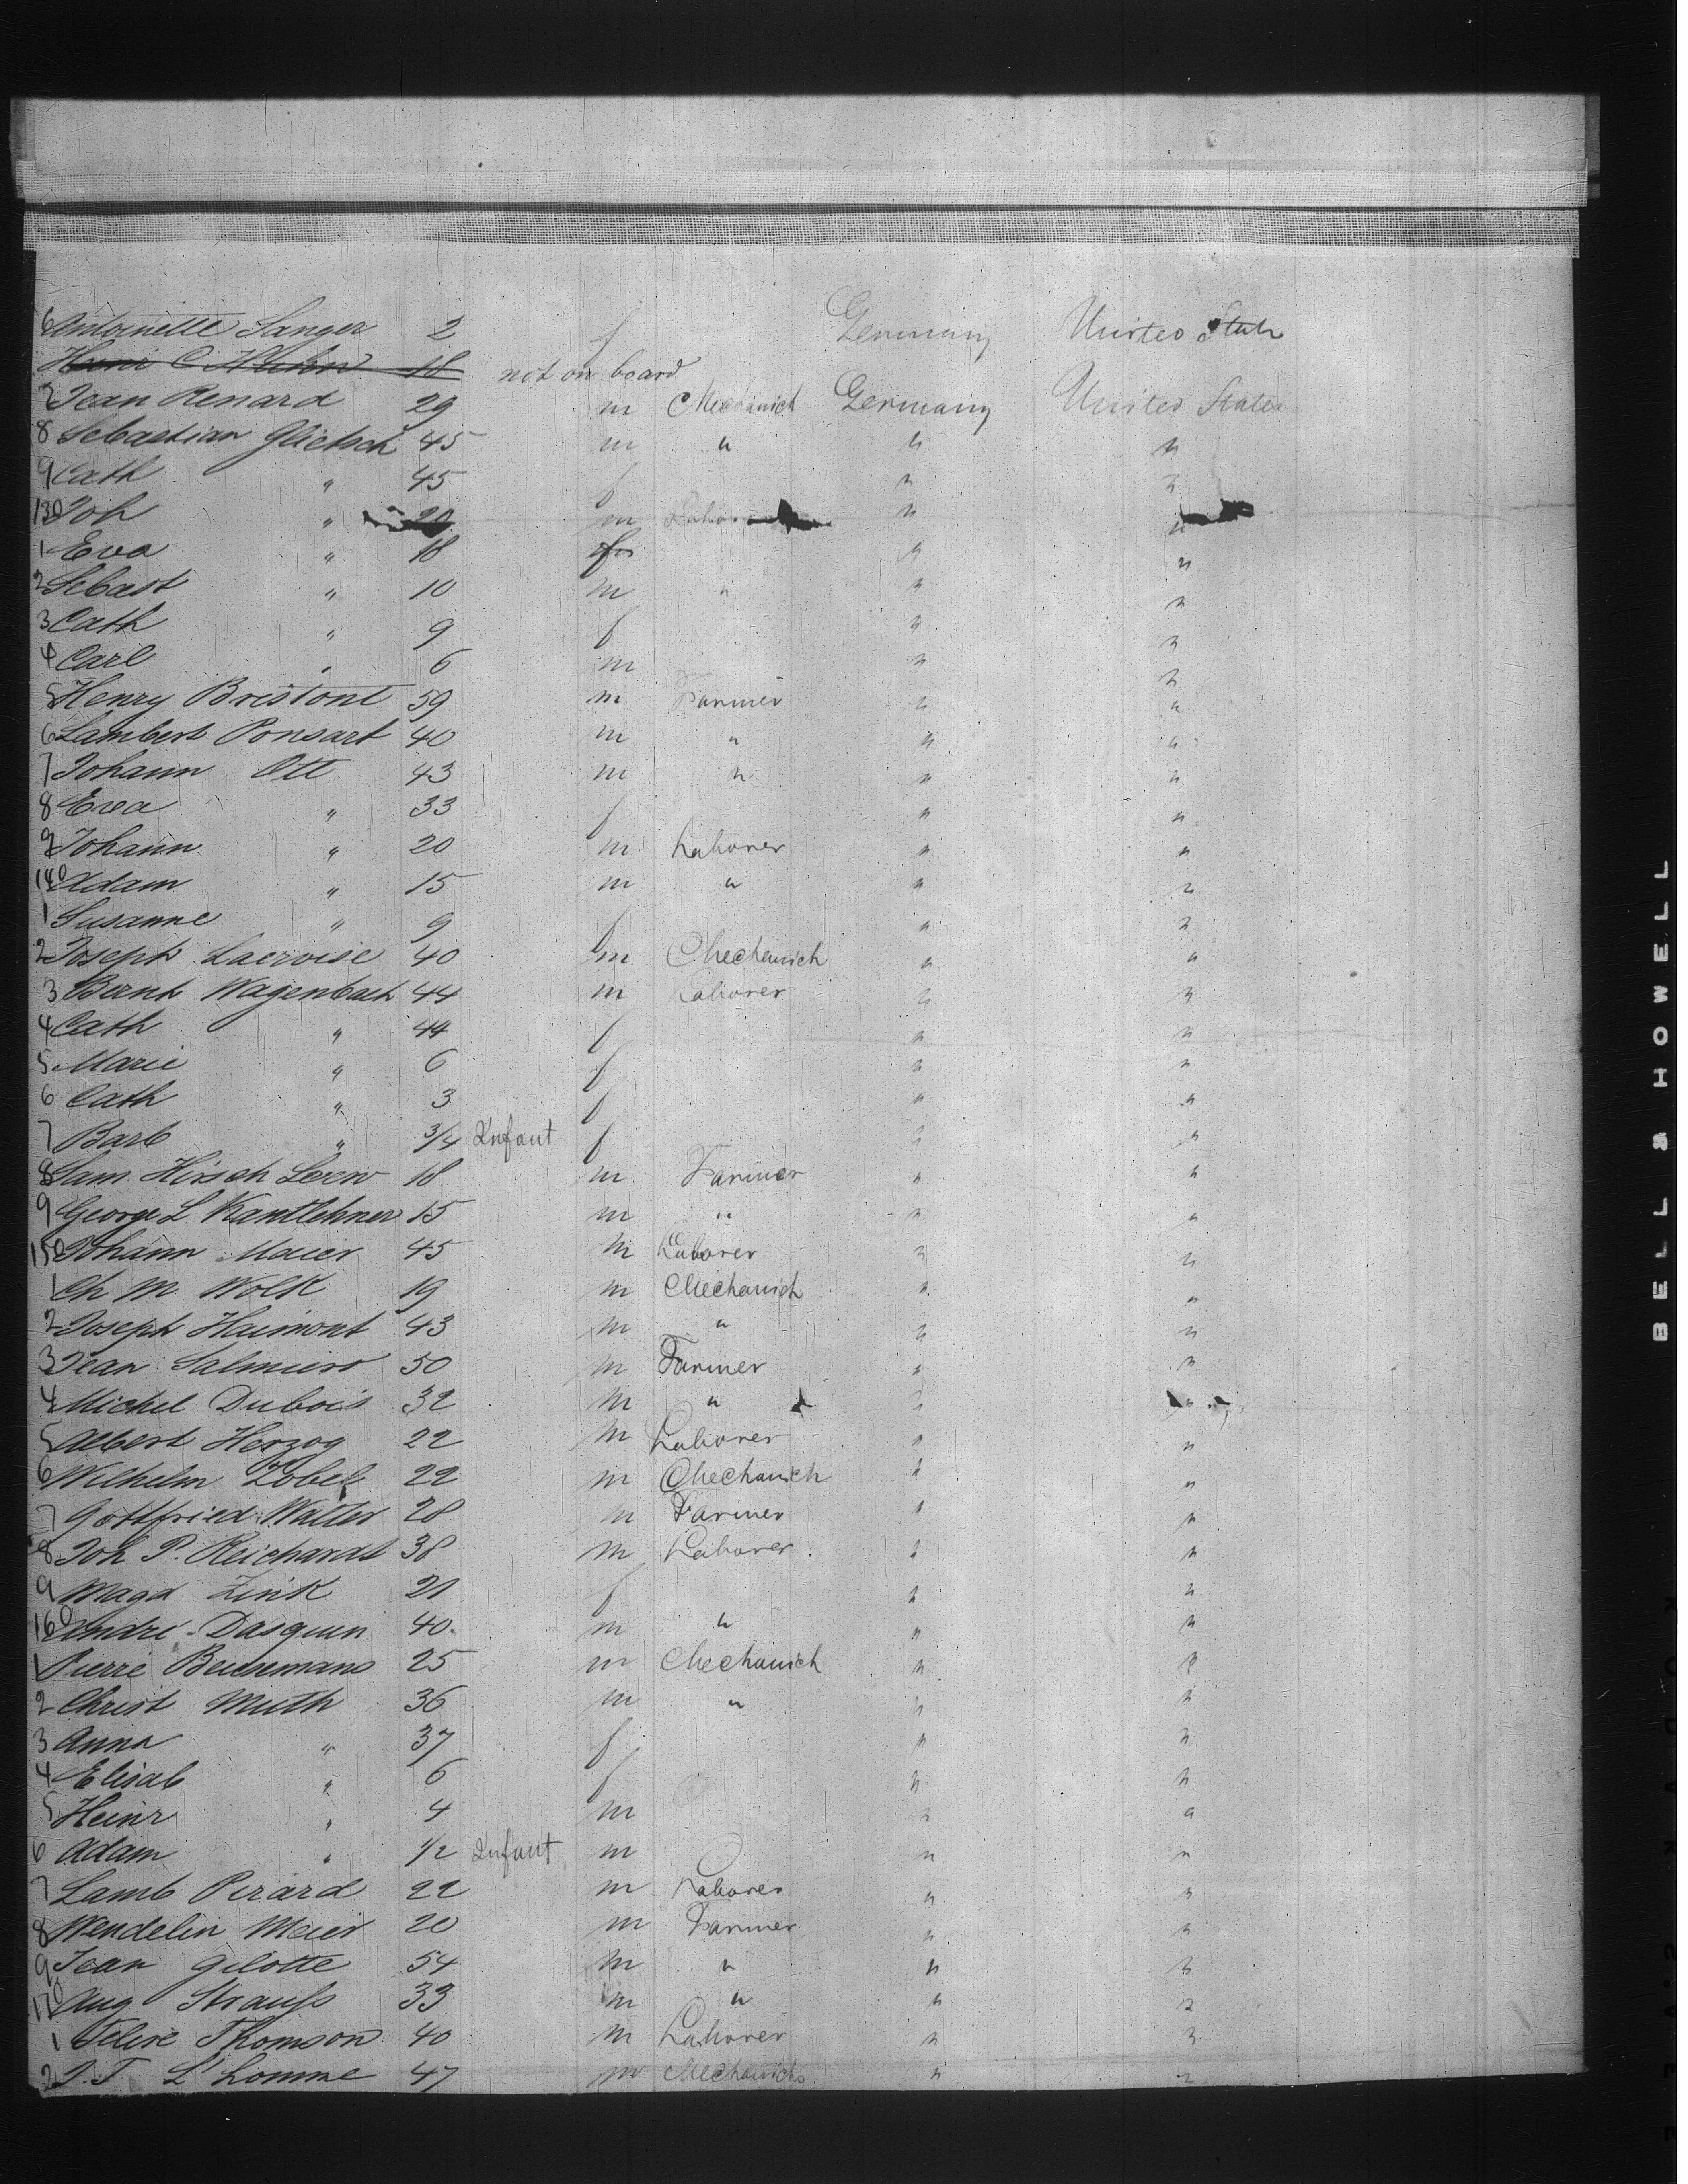 6 Antoinette Sanger 2 f Germany United States
18 not on board
7 Jean Renard 29 m Mechanich Germany United States
8 Sebastian Glietsch 45 m " " "
9 Cath " 45 f " "
130 Joh " 20 m " "
1 Eva " 18 f " "
2 Sebast " 10 m " " "
3 Cath " 9 f " "
4 Carl " 6 m " "
5 Henry Bristont 59 m Farmer " "
6 Lambert Ponsart 40 m " " "
7 Johann Ott 43 m " " "
8 Eva " 33 f " "
9 Johann " 20 m Laborer " "
140 Adam " 15 m " " "
1 Susanne " 9 f " "
2 Joseph Lacroise 40 m Mechanich " "
3 Bernh Wagenbach 44 m Laborer " "
4 Cath " 44 f " "
5 Marie " 6 f " "
6 Cath " 3 f " "
7 Barb " 3/4 Infant f " "
8 Sam Hirsch 18 m Farmer " "
9 George L Kantlehner 15 m " " "
150 Johann Maier 45 m Laborer " "
1 Ch M Wolk 19 m Mechanich " "
2 Joseph Haimont 43 m " " "
3 Jean 50 m Farmer " "
4 Michel Dubois 32 m " " "
5 Albert Herzog 22 m Laborer " "
6 Wilhelm Zobel 22 m Mechanich " "
7 Gottfried Walter 28 m Farmer " "
8 Joh P. Reichardt 38 m Laborer " "
9 Magd Zink 21 f " "
160 Andre Dasquin 40 m " " "
1 Pierre 25 m Mechanich " "
2 Christ Muth 36 m " " "
3 Anna " 37 f " "
4 Elisab " 6 f " "
5 Heinr " 4 m " "
6 Adam " 1/2 Infant m " "
7 Lamb Pirard 22 m Laborer " "
8 Wendelin Meier 20 m Farmer " "
9 Jean Gilotte 54 m " " "
170 Aug Strauß 33 m " " "
1 Thomson 40 m Laborer " "
2 J. T L'homme 47 m Mechanich " "
BELL & HOWELL